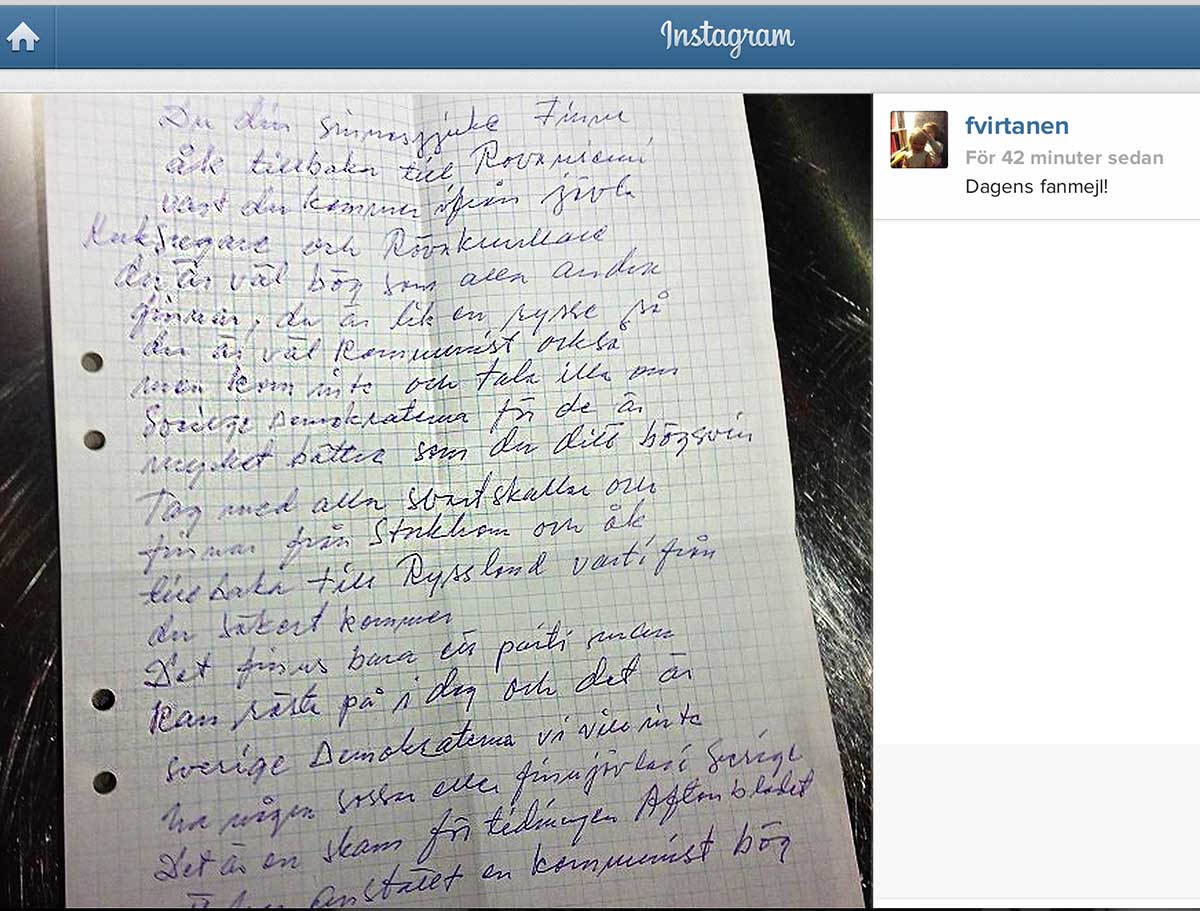 Instagram
Du din sinnessjuke Finne
åk tillbaka till Rovaniemi
vart du kommer ifrån jävla
Kuksugare och Rövknullare
du är väl bög som alla andra
finnar, du är lik en rysse på
du är väl kommunist också
men kom inte och tala illa om
Sverige Demokraterna för de är
mycket bättre som du ditt bögsvin
Tag med alla svartskallar och
finnar från Stockhom och åk
tillbaka till Ryssland vart i från
du säkert kommer
Det finns bara ett parti man
kan rösta på i dag och det är
sverige Demokraterna vi vill inte
ha någon sosse eller finnjävlar i Sverige
Det är en skam för tidningen Aftonbladet
anställt en kommunist bög
fvirtanen
För 42 minuter sedan
Dagens fanmejl!